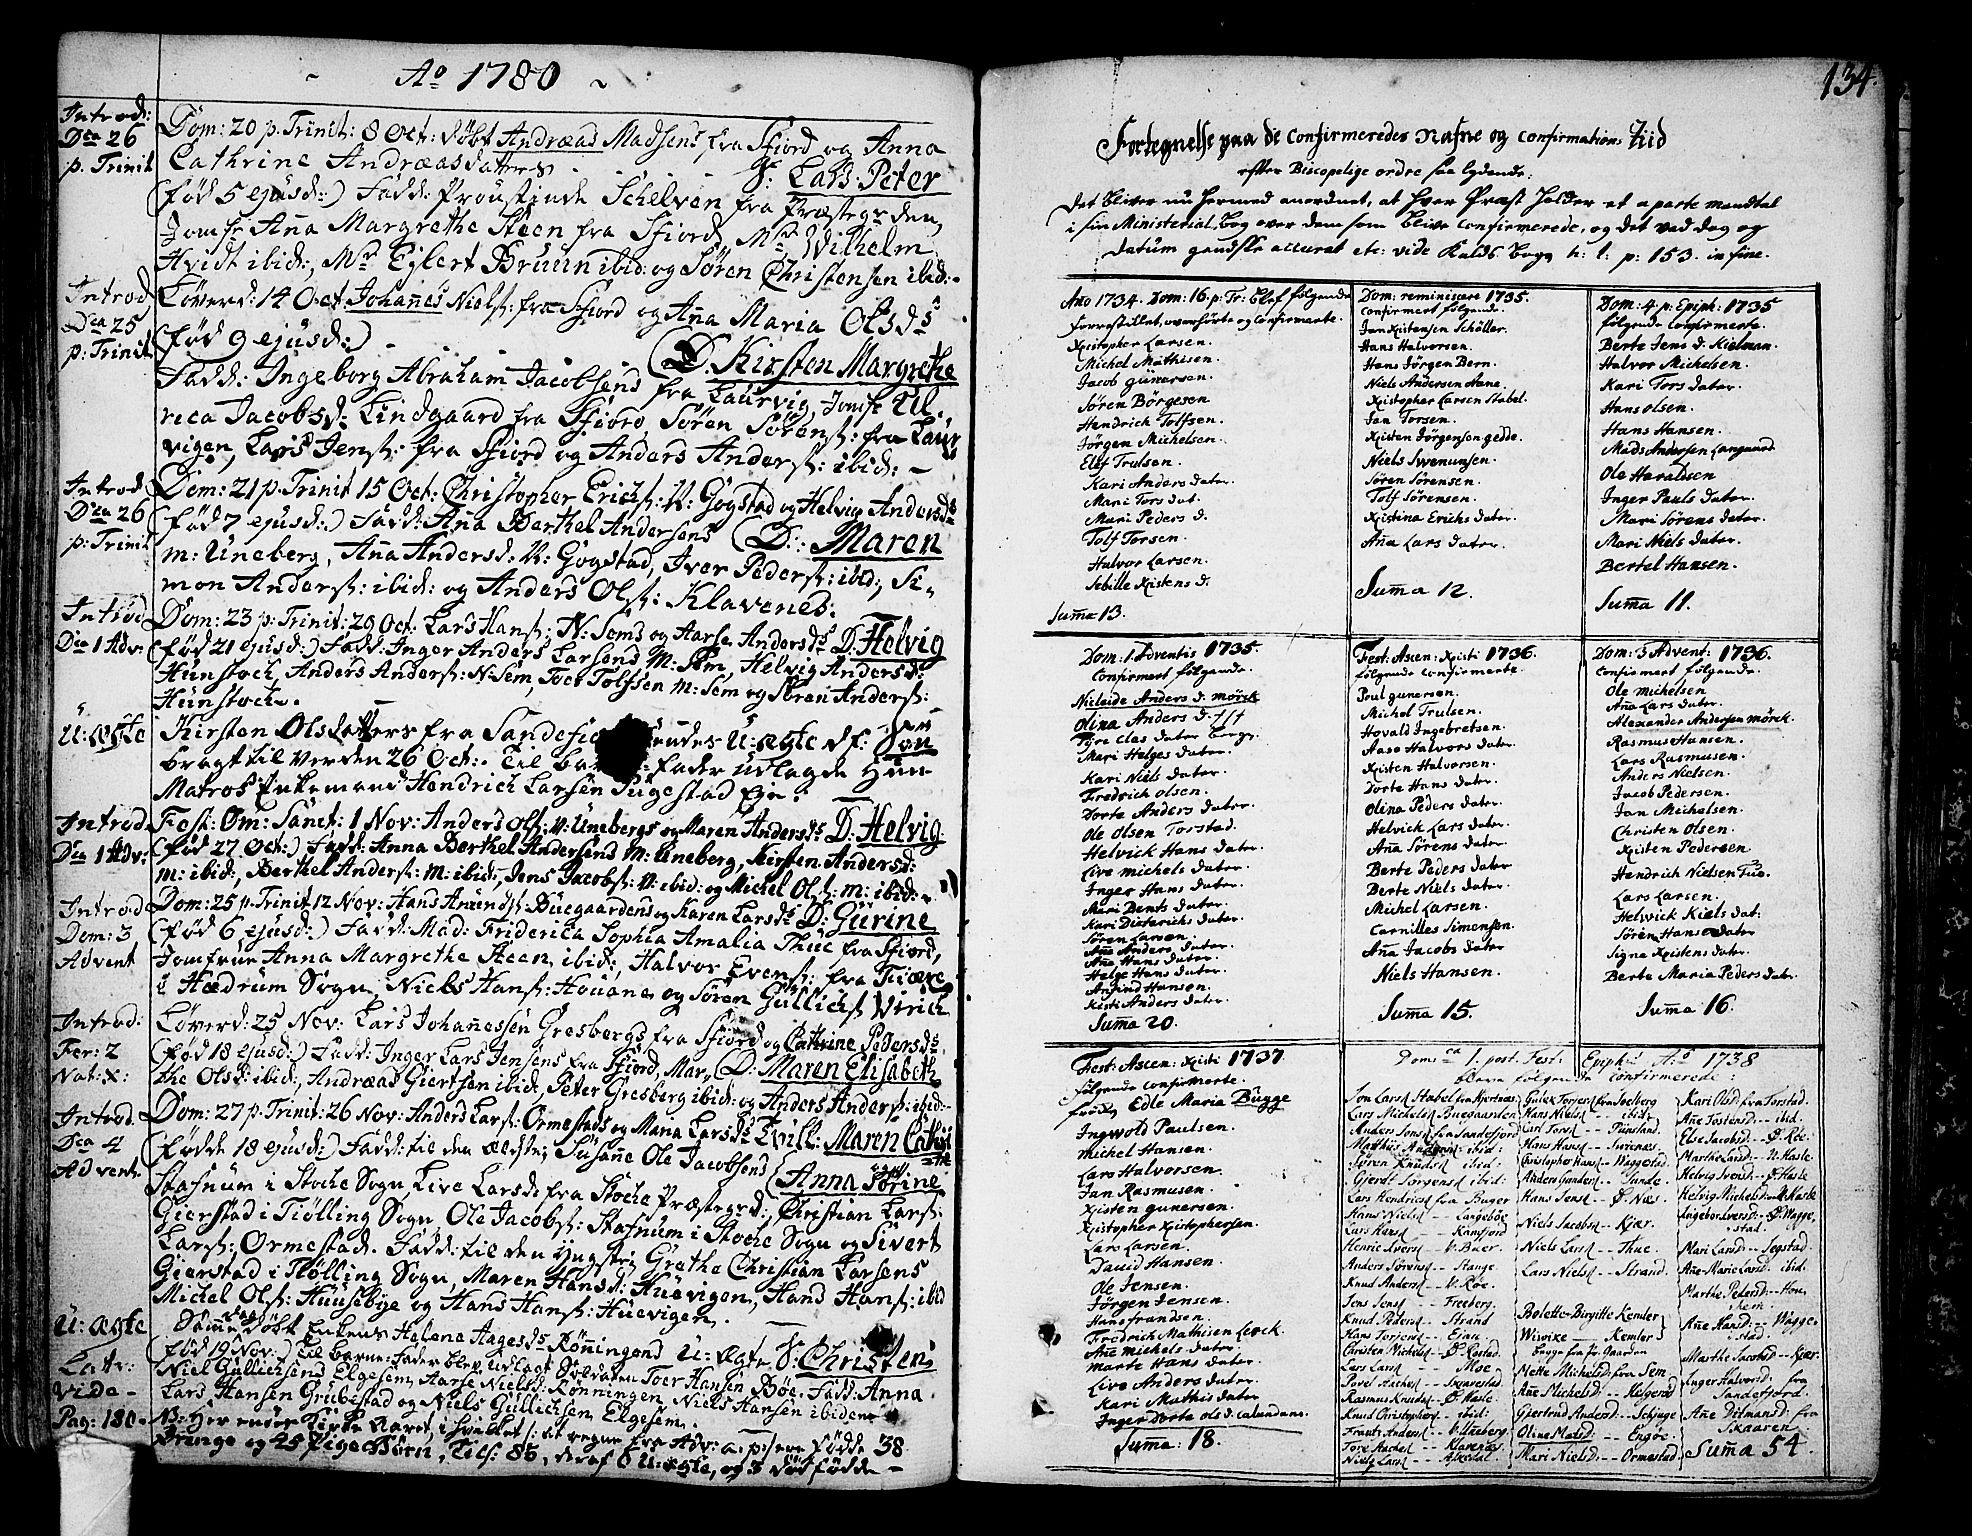 Ao 1780
Introd:
Dca 26
p. Trinit
Dom: 20 p. Trinit: 8 Oct: døbt Andræas Madsens fra Sfiord og Anna
Cathrine Andræasdatters S: Lars Peter
(fød 5 ejusd:) Fadd: Proustinde Schelven fra Præstegrden,
Jomfr Anna Margrethe Steen fra Sfiord, Mr Wilhelm
Hvidt ibid:, Mr Eylert Bruun ibid: og Søren Christensen ibid:
Introd
Dca 25
p: Trinit
Løverd: 14 Oct Johanes Niels: fra Sfiord og Ana Maria Olsds
(fød 9 ejusd:) D. Kirsten Margrethe
Fadd: Ingeborg Abraham Jacobsens fra Laurvig, Jomfr Ul-
rica Jacobsd: Lindgaard fra Sfiord, Søren Sørens: fra Laur
vigen, Lars Jens: fra Sfiord og Anders Anders: ibid:
Introd
Dca 26
p: Trinit
Dom: 21 p. Trinit 15 Oct: Christopher Erichs: N: Gogstad og Helvig Andersds
(fød 7 ejusd:) Fadd: Ana Berthel Andersens D: Maren
m: Uneberg, Ana Andersd: N: Gogstad, Iver Peders: ibid:, Si-
mon Anders: ibid: og Anders Ols: Klavenes.
Introd
Dca 1 Adv:
Dom: 23 p: Trinit: 29 Oct. Lars Hans: N: Sems og Aarse Andersds D: Helvig
(fød 21 ejusd:) Fadd: Inger Anders Larsens M: Sem, Helvig Andersd:
Hunstoch, Anders Anders: N: Sem, Toer Tolfsen m: Sem og Søren Anders:
Hunstoch.
U: ægte
Kirsten Olsdatters fra Sandefio U: ægte df: Søn
bragt til verden 26 Oct: Til fader udlagde hun
Matros Enkemand Hendrich Larsen Fugestad Eje.
Introd
Dca 1 Adv:
Fest: Om: Sanct: 1 Nov: Anders Ols: N: Unebergs og Maren Andersds D: Helvig
(fød 27 Oct:) Fadd: Anna Berthel Andersens M: Uneberg, Kirsten Andersd:
m: ibid:, Berthel Anders: M: ibid:, Jens Jacobs: N: ibid: og Michel Ols: m: ibid:
Introd
Dom: 3
Advent
Dom: 25 p. Trinit 12 Nov: Hans Amunds: Buegaardens og Karen Larsds D: Gurine
(fød 6 ejusd:) Fadd: Mad: Friderica Sophia Amalia Thue fra Sfiord,
Jomfrue Anna Margrethe Steen ibid:, Halvor Evens: fra
i Hædrum Sogn, Niels Hans: Houane og Søren Gullichs Virich
Introd:
Fer: 2
Nat: x:
Løverd: 25 Nov: Lars Johanessen Gresbergs fra Sfiord og Cathrine Pedersds
(fød 18 ejusd:) Fadd: Inger Lars Jensens fra Sfiord, Mar, D: Maren Elisabeth
the Olsd: ibid:, Andræas Giertsen ibid:, Peter Gresberg ibid: og Anders Anders: ibid:
Introd.
Dca 4
Advent
Dom: 27 p. Trinit: 26 Nov: Anders Lars: Ormestads og Maria Larsds Tvill: Maren Cathri
(fødde 18 ejusd:) Fadd: til den ældste; Susane Ole Jacobsens Anna Sørine
Stafnum i Stoche Sogn, Live Larsd: fra Stoche Præstegrd:, Christian Lars:
Gierstad i Tiølling Sogn, Ole Jacobs: Stafnum i Stoche Sogn og Sivert
Lars: Ormestad. Fadd: til den yngste; Grethe Christian Larsens
Gierstad i Tiølling Sogn, Maren Hansd: Huevigen, Hans Hans: ibid
Michel Ols: Huusebye og Hans Hans: Huevigen.
U: ægte
Latr:
vide
Pag: 180
Same dag døbt Enkens Helene Aagesds Rønningens U: ægte S: Christen
(fød 19 Nov:) Til barne: Fader blev udlagt Soldaten Toer Hansen Bøe. Fadd: Anna
Niel Gullichsens Elgesem, Aarse Nielsd: Rønningen, Niels Hansen ibidem
Lars Hansen Grubestad og Niels Gullichsen Elgesem.
NB: Her ender Kirke Aaret, i hvilket: at regne fra Adv: a. p: ere fødde 38
Drenge og 45 Pige Børn, Tils: 85, deraf 8 U: ægte, og 3 dødfødde
134.
Fortegnelse paa de Confirmeredes Nafne og Confirmations Tiid
efter Biscopelige ordre saa lydende:
Det bliver nu hermed anordnet, at hver Præst holder et aparte mandtal
i sin Ministerial bog over dem som blive confirmerede, og det ved dag og
datum gandske accurat etc: vide Kalds bog n: 1: p: 153. in fine.
Ano 1734. Dom: 16. p: Tr: blef følgende
forrestillet, overhörte og confirmerte.
Xristopher Larsen.
Michel Mathisen
Jacob gunersen.
Sören Börgesen
Hendrich Tolfsen.
Jörgen Michelsen.
Elef Trulsen.
Kari Anders dater.
Mari Tors dat.
Mari Peders d.
Tolf Torsen.
Halvor Larsen.
Sebille Xistens d.
Suma 13.
Dom: reminiscere 1735.
Confirmert følgende.
Jan Xistensen Schöller.
Hans Halvorsen.
Hans Jörgen Bern.
Niels Andersen Aane.
Xristopher Larsen Stabel.
Jan Torsen.
Xristen Jörgensen gedde.
Niels Swenunsen.
Sören Sörensen.
Tolf Sörensen.
Xristina Erichs dater.
Aña Lars dater.
Suma 12.
Dom: 4 p: Epiph: 1735
følgende Confirmerte.
Berte Jens d: Kielman.
Halvor Michelsen.
Kari Tors dater.
Hans olsen.
Hans Hansen.
Mads Andersen Langaard.
Ole Haraldsen
Inger Pauls dater.
Mari Sörens dater.
Mari Niels dater.
Bertel Hansen.
Suma 11.
Dom: 1 Adventis 1735.
Confirmert følgende.
Nielaide Anders d: mörck
Olina Anders d:
Tyre Clas dater berg.
Mari Helges dater.
Kari Niels dater.
Fredrich olsen.
Dorte Anders dater.
Ole olsen Torstad.
Helvick Hans dater.
Live michels dater.
Inger Hans dater.
Mari Bents dater.
Kari Disterichs dater.
Sören Larsen.
Ane Anders dater.
Ana Hans dater.
Helge Hans dater.
Anfind Hansen.
Kisti Anders dater.
Suma 20.
Fest: Ascen: Xristi 1736.
følgende confirmerte
Poul gunersen.
Michel Trulsen.
Hovald Ingebretsen.
Aase Halvors dater.
Xristen Halvorsen.
Dorte Hans dater.
Olina Peders dater.
Helvick Lars dater.
Aña Sörens dater.
Berte Peders dater.
Berte Niels dater.
Michel Larsen.
Cornilles Simensen.
Aña Jacobs dater
Niels Hansen.
Suma 15.
Dom: 3 Advent: 1736.
Confirmert følgende.
Ole michelsen
Aña Lars dater.
Alexander Andersen mörck.
Rasmus Hansen.
Lars Rasmusen.
Anders Nielsen.
Jacob Pedersen.
Jan Michelsen.
Christen Olsen.
Xristen Pedersen
Hendrich Nielsen Fuo.
Lars Larsen.
Helvick Kiels dat:
Sören Hanse dater
Signe Xristens dater.
Berte Maria Peders dater.
Suma 16.
Fest: Ascen: Xristi 1737.
følgende confirmerte.
Edle Maria Bugge
Ingwold Paulsen.
michel Hansen.
Lars Halvorsen.
Jan Rasmusen.
Xristen gunersen.
Xristopher Xristophersen.
Lars Larsen.
David Hansen.
Ole Jensen.
Jörgen Jensen.
Hans frandsen.
Fredrich Mathisen Lerck.
Ane michels dater.
marte Hans dater.
Live Anders dater.
Kari Mathis dater
Inger Dorte ols d: Calundans.
Suma: 18.
Domca 1. post. Fest: Epiph: Ao 1738
bleve følgende confirmerede:
Jon Larss Stabel fra Kjertnæs
Lars Michelss Buegaarden
Anders Jonss fra Sandefjord
ibid:
Søren Knuds ibid:
Gjerdt Jørgens ibid:
Lars Hendrichs fra Buger
Hans Niels -- Langebøe
Lars Hans -- Ranfjord
Henric Ivers -- V: Buer.
Anders Sørens -- Stange
Knud Anders -- V: Røe.
Jens Jens -- Freeberg.
Knud Peders -- Strand
Hans Torjens -- Ejau
Christen Nichels -- Ø: Rostad.
Lars Lars -- Moe
Povel Aaches -- Skarestad.
Rasmus Knuds -- Ø: Hasle
Knud Christophers ibid:
Frants Anders -- V: Uneberg.
Tore Aaches -- Klavenæs
Niels Lars -- Askedal
Gulek Torjens fra Soeberg
Hans Niels -- ibid:
Carl Tors -- Punstand.
Hans Hans -- Furenæs.
Christopher Hans -- Waggestad
Anders Gunders -- Sunde
Hans Jens -- Ø: Næs.
Niels Jacobs -- Kjær.
Niels Lars -- Thue.
Lars Niels -- Strand.
Bolette-Birgitte Kemler
Wiwike -- Kemler
begge fra Pr: Gaarden
Mette Michelsd: fra Sem
Ane Michelsd: -- Helgerød
Gjertrud Andersd: -- Schjuge
Oline Matsd: -- Engøe.
Mari Nielsd: -- Ormestad.
Kari Olsd: fra Torstad.
Ane Tostensd: -- ibid.
Else Jacobsd: -- Ø. Røe.
Marthe Larsd: -- V. Hasle.
Helvig Ivensd: -- Ø: Hasle
Helvig Nichelsd: V: Hasle
Ingebor Iversd: -- Ø: Wagge,
stad.
Mari Larsd: -- Segstad.
Ane-Marie Larsd: -- ibid.
Marthe Pedersd: -- Hou,
kem.
Ane Hansd: -- Wagge,
stad.
Marthe Jacobsd: -- Kjær.
Inger Halvorsd: fra
Sandefjord.
Ane Ditmansd: fra
Skaaren.
Suma 54.